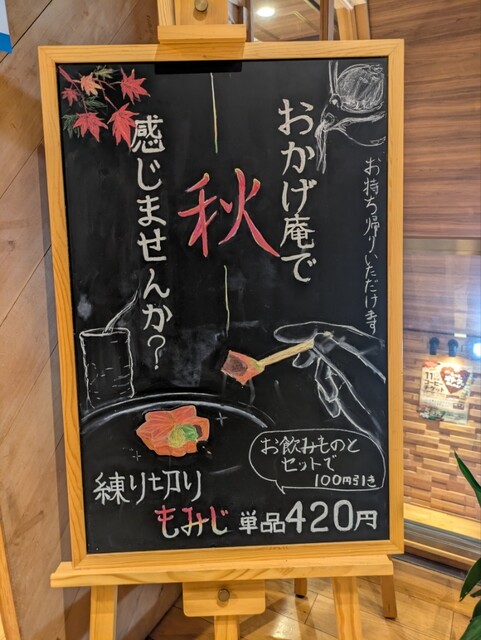 おかげ庵で
秋
感じませんか?
お持ち帰りいただけます
お飲みものと
セットで
100円引き
練り切り
もみじ 単品420円